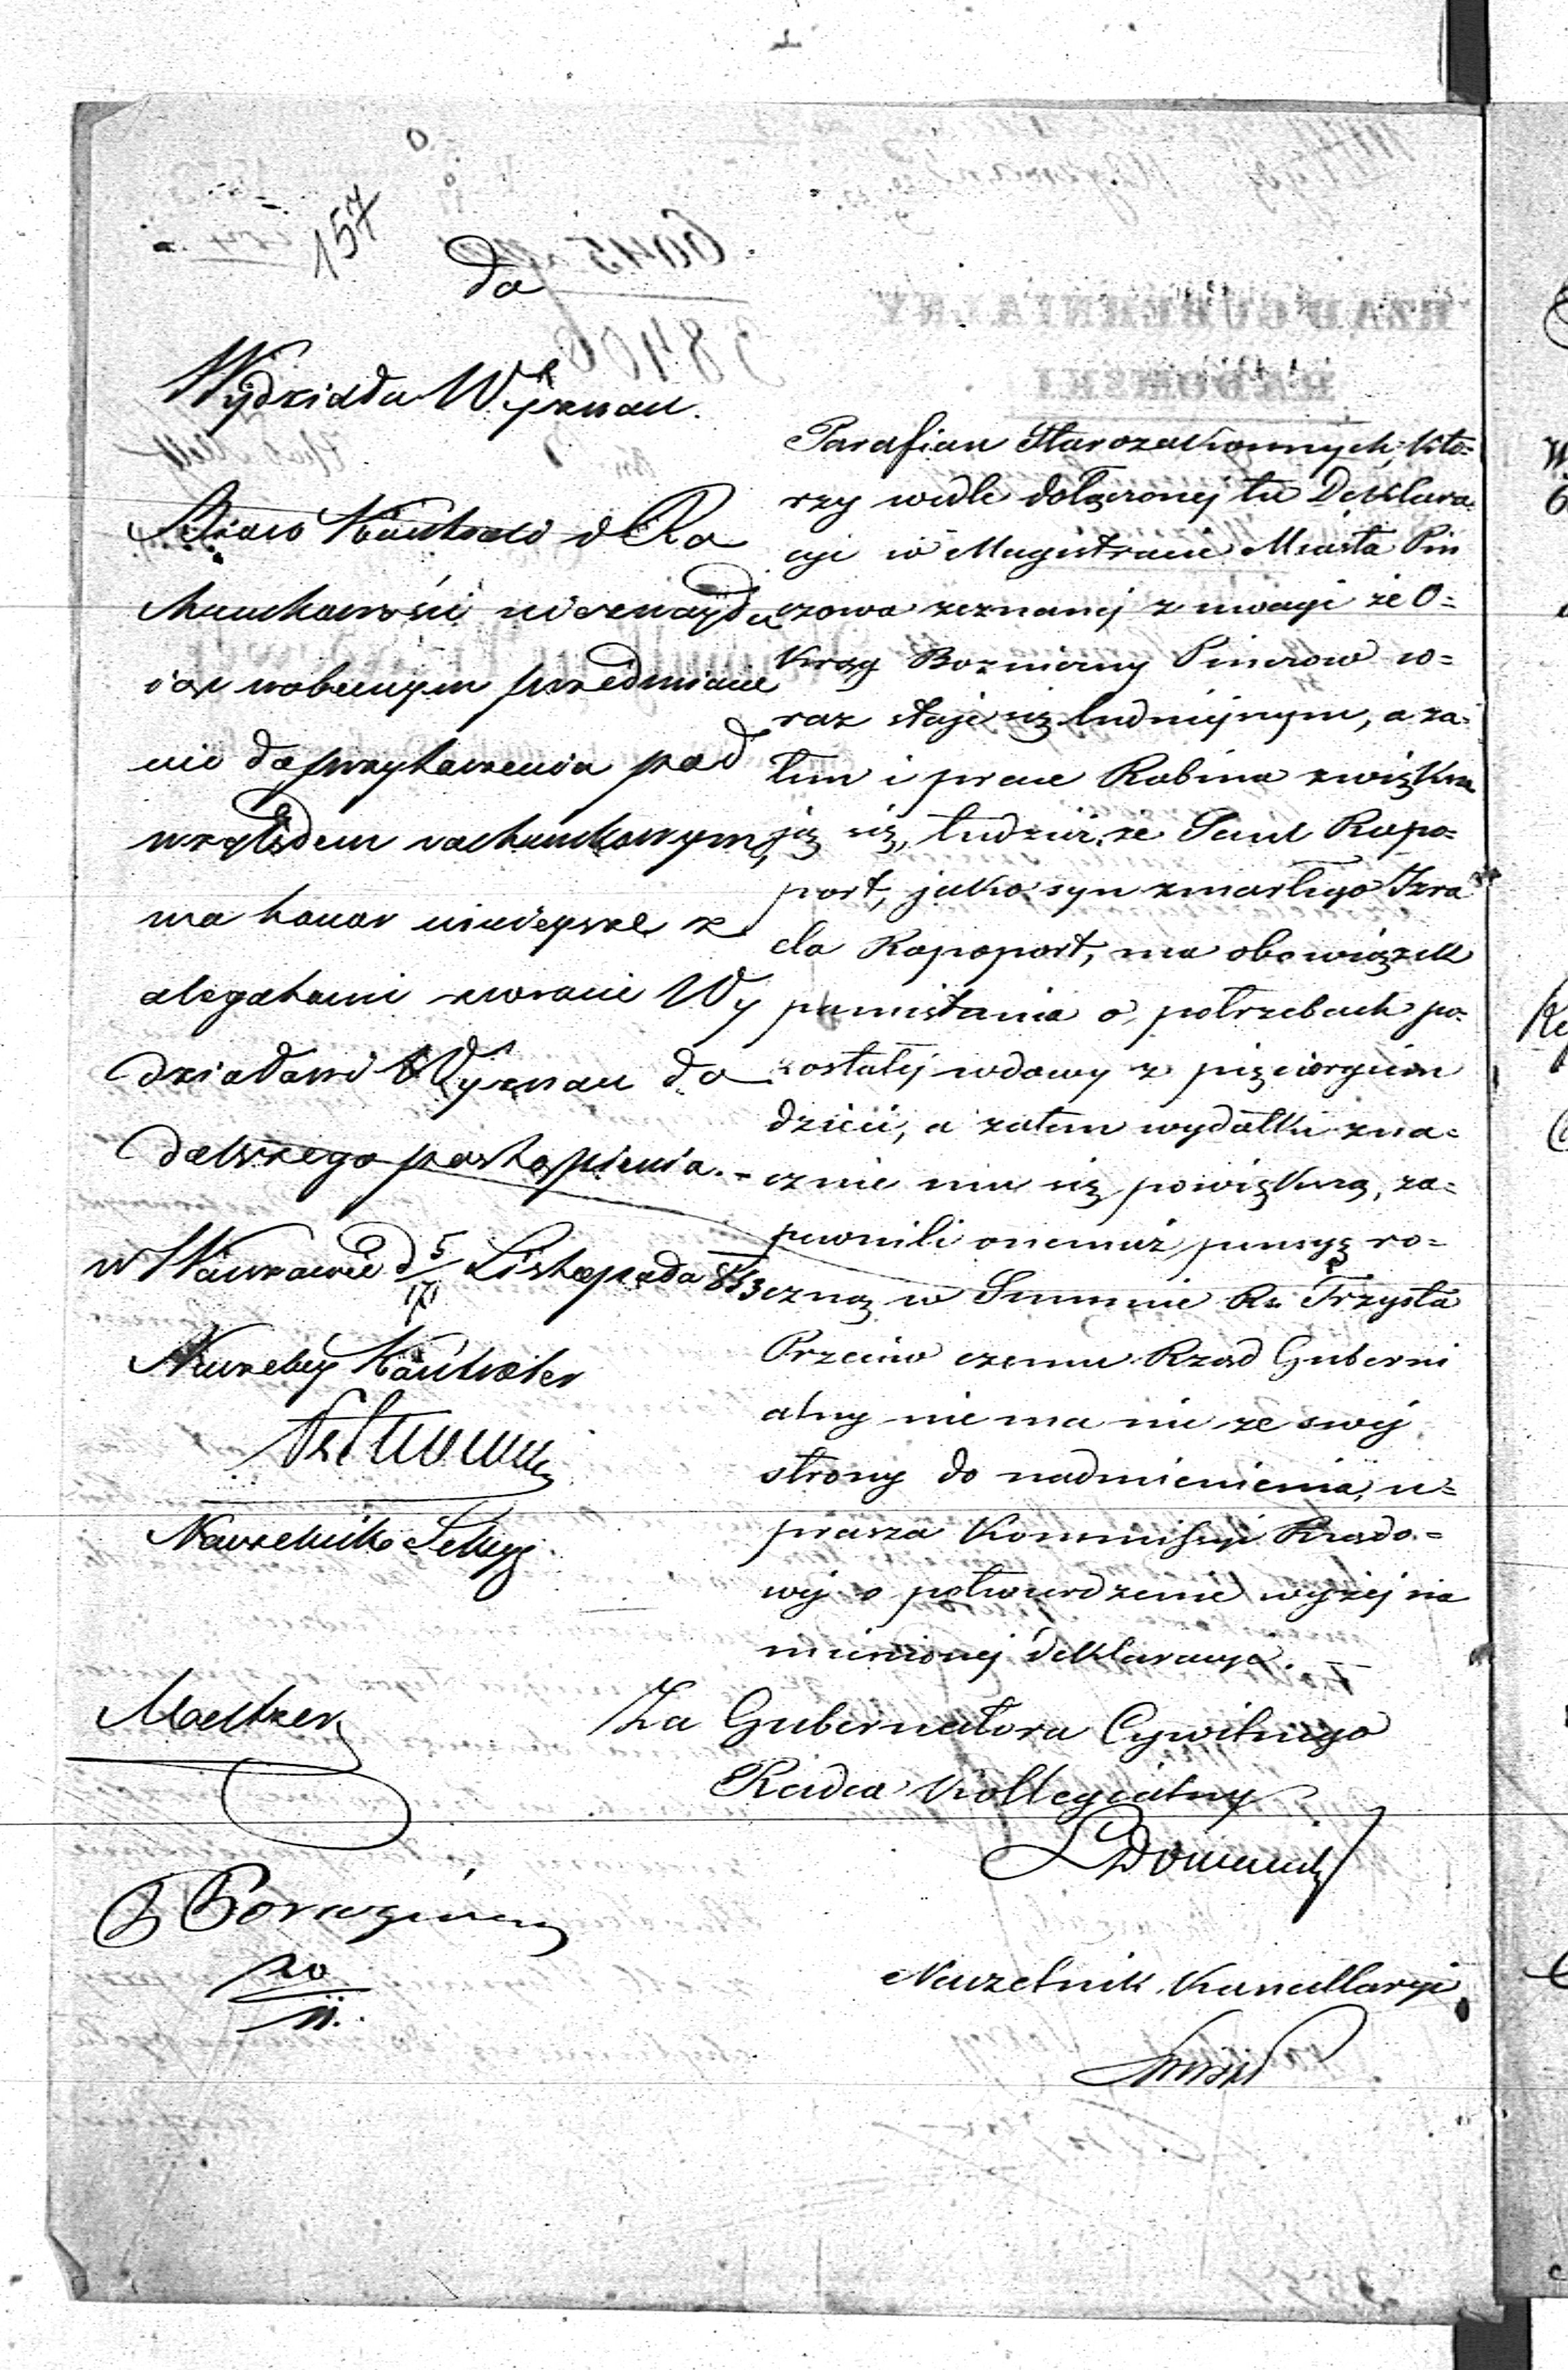 157
do
Wydziału Wyznań.
Biuro Kontroli i Ra
chunkowości nieznajdu
iąc wobecnym przedmiocie
nic do przytoczenia pod
względem rachunkowym,
ma honor ninieysze z
alegatami zwrócić Wy
działowi Wyznań do
dalszego postąpienia.-
w Warszawie d 5/17 Listopada 853
Naczelny Kontroler
Naczelnik Sekcyi
Meltzer
20
11.
Parafian Starozakonnych, któ=
rzy wedle dołączonej tu Deklara
cyi w Magistracie Miasta Piń
czowa zeznanej z uwagi że O=
kręg Bożniczny Pinczow co=
raz staje się ludniejszym, a za=
tem i prace Rabina zwiększa
ją się, tudzież, że Saul Rapo=
port, jako syn zmarłego Izra
ela Rapoport, ma obowiązek
pamiętania o potrzebach po=
zostałej wdowy z pięciorgiem
dzieci, a zatem wydatki zna=
cznie mu się powiększą, za=
pewnili onemuż pensyę ro=
czną w Summie Rs Trzysta
Przeciw czemu Rząd Guberni
alny nie ma nic ze swej
strony do nadmienienia, u=
prasza Kommissyi Rządo=
wej o potwierdzenie wyżej na
mienionej deklaracyi. -
Za Gubernatora Cywilnego
Radca Kollegialny
Naczelnik Kancellaryi